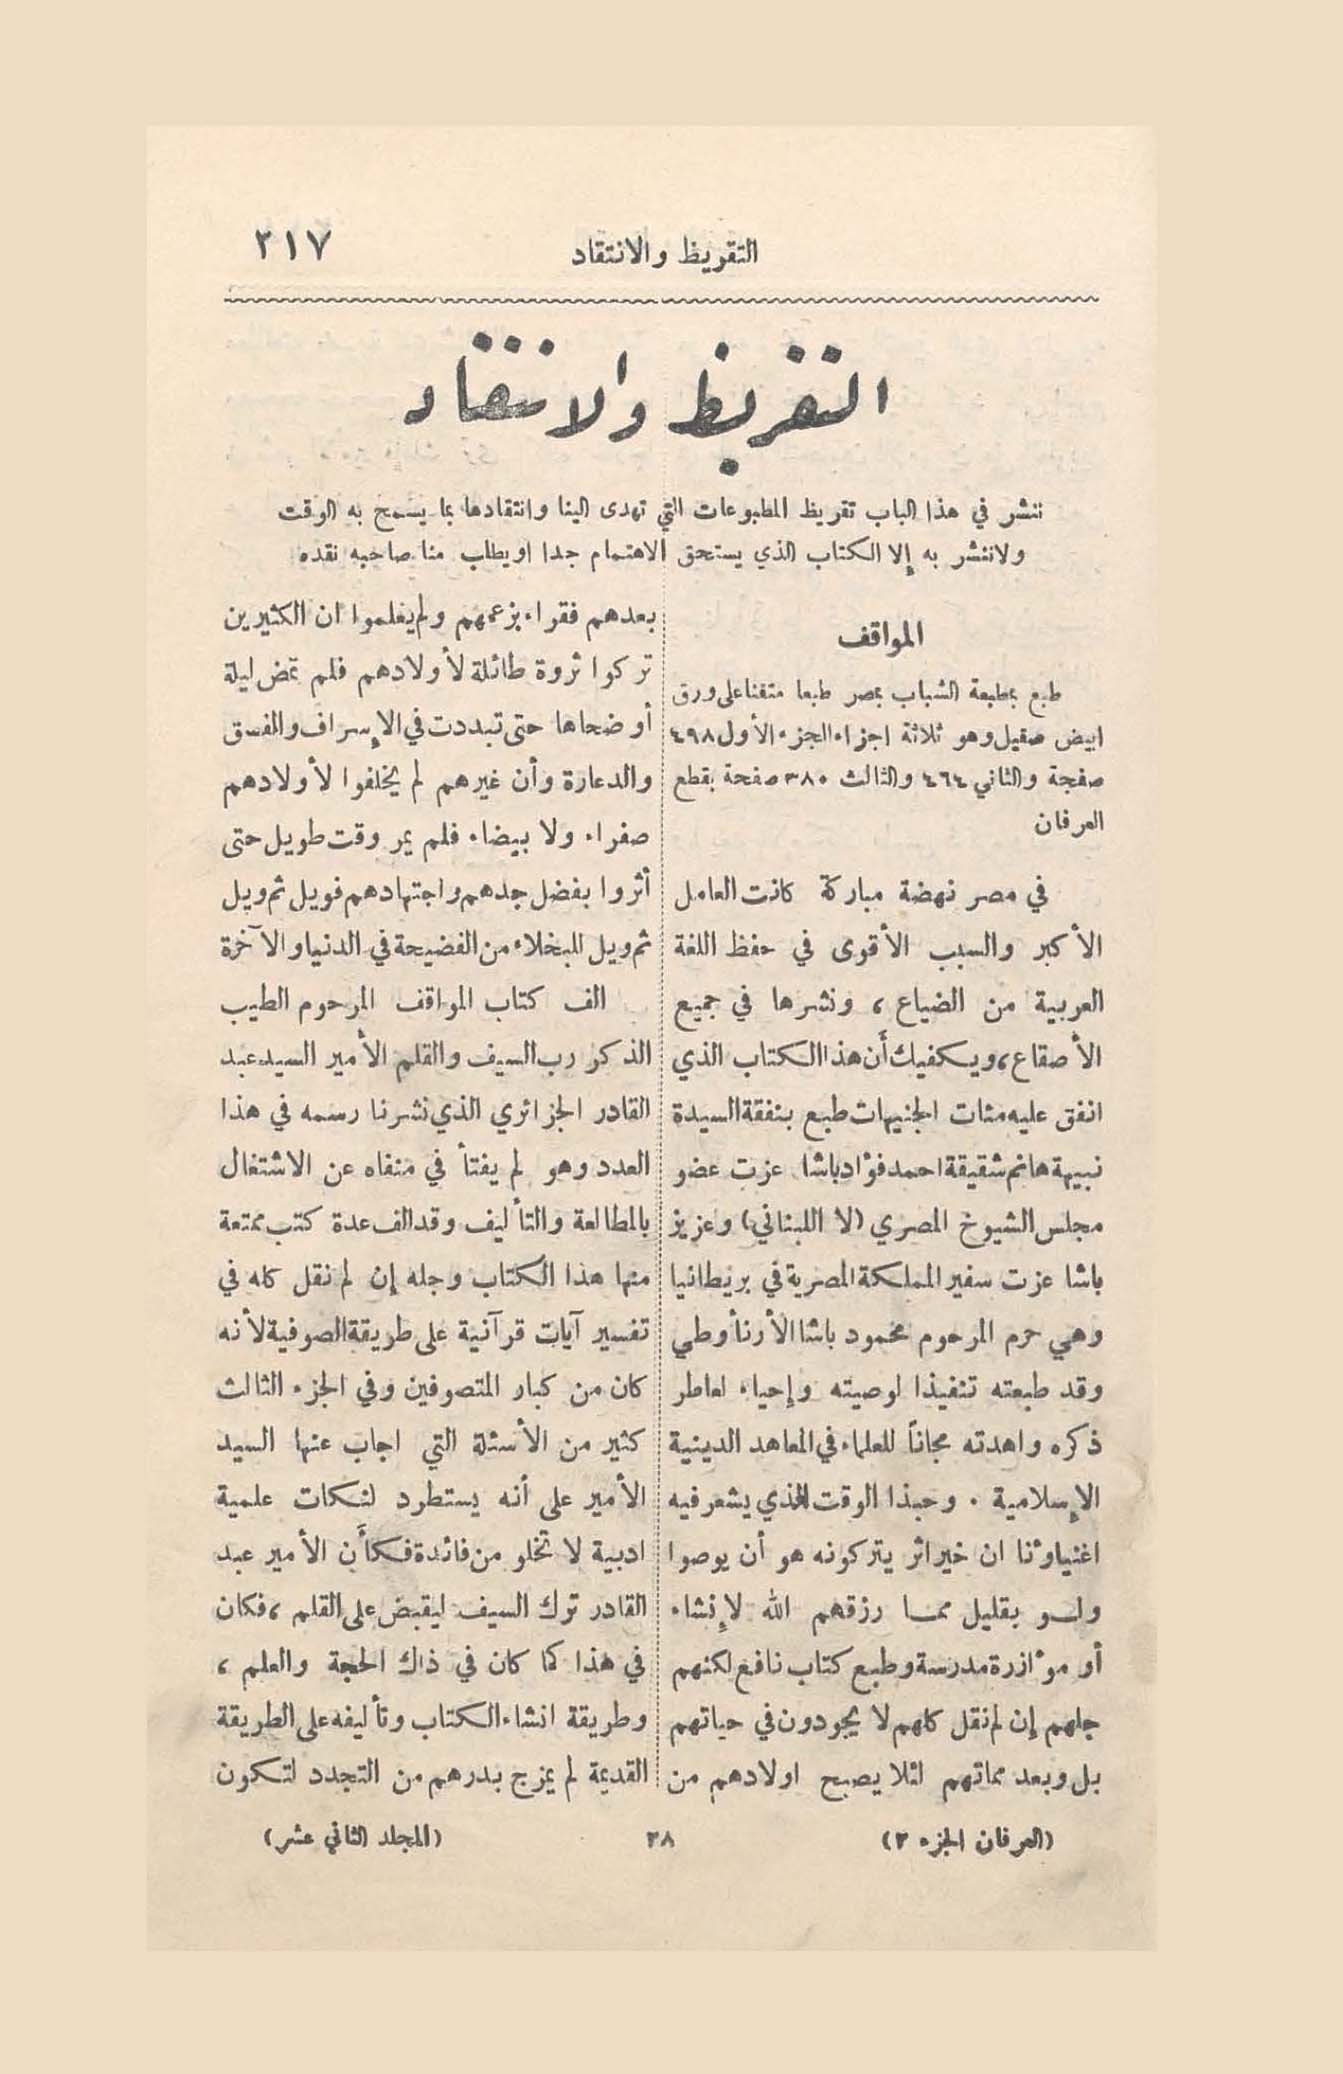 التقريظ والانتقاد ٢١٧
التقريظ والانتقاد
ننشر في هذا الباب تقريظ المطبوعات التي تهدى الينا وانتقادها بما يسمح به الوقت
ولاننشر به إلا الكتاب الذي يستحق الاهتمام جدا او يطلب منا صاحبه نقده
المواقف
طبع بمطبعة الشباب بمصر طبعا متقنا على ورق
ابيض صقيل وهو ثلاثة اجزاء الجزء الأول ٤٩٨
صفحة والثاني ٤٦٤ والثالث ٣٨٠ صفحة بقطع
العرفان
في مصر نهضة مباركة كانت العامل
الأكبر والسبب الأقوى في حفظ اللغة
العربية من الضياع ، ونشرها في جميع
الأصقاع، ويكفيك أن هذا الكتاب الذي
انفق عليه مئات الجنيهات طبع بنفقة السيدة
نبيهة هانم شقيقة احمد فؤاد باشا عزت عضو
مجلس الشيوخ المصري (لا اللبناني) وعزيز
باشا عزت سفير المملكة المصرية في بريطانيا
وهي حرم المرحوم محمود باشا الأرنأوطي
وقد طبعته تنفيذا لوصيته وإحياء لعاطر
ذكره واهدته مجاناً للعلماء في المعاهد الدينية
الإسلامية . وحبذا الوقت الذي يشعر فيه
اغنياؤنا ان خير اثر يتركونه هو أن يوصوا
ولو بقليل مما رزقهم الله لإنشاء
أو مؤازرة مدرسة وطبع كتاب نافع لكنهم
جلهم إن لم نقل كلهم لا يجودون في حياتهم
بل وبعد مماتهم لئلا يصبح اولادهم من
بعدهم فقراء بزعمهم ولم يعلموا ان الكثيرين
تركوا ثروة طائلة لأولادهم فلم تمض ليلة
أو ضحاها حتى تبددت في الإسراف والفسق
والدعارة وأن غيرهم لم يخلفوا لأولادهم
صفراء ولا بيضاء فلم يمر وقت طويل حتى
أثروا بفضل جدهم واجتهادهم فويل ثم ويل
ثم ويل للبخلاء من الفضيحة في الدنيا والآخرة
الف كتاب المواقف المرحوم الطيب
الذكر رب السيف والقلم الأمير السيد عبد
القادر الجزائري الذي نشرنا رسمه في هذا
العدد وهو لم يفتأ في منفاه عن الاشتغال
بالمطالعة والتأليف وقد الف عدة كتب ممتعة
منها هذا الكتاب وجله إن لم نقل كله في
تفسير آيات قرآنية على طريقة الصوفية لأنه
كان من كبار المتصوفين وفي الجزء الثالث
كثير من الأسئلة التي اجاب عنها السيد
الأمير على أنه يستطرد لنكات علمية
ادبية لا تخلو من فائدة فكأن الأمير عبد
القادر ترك السيف ليقبض على القلم ، فكان
في هذا كما كان في ذاك الحجة والعلم ،
وطريقة انشاء الكتاب وتأليفه على الطريقة
القديمة لم يمزج بدرهم من التجدد لتكون
(العرفان الجزء ٢) ٢٨ (المجلد الثاني عشر)